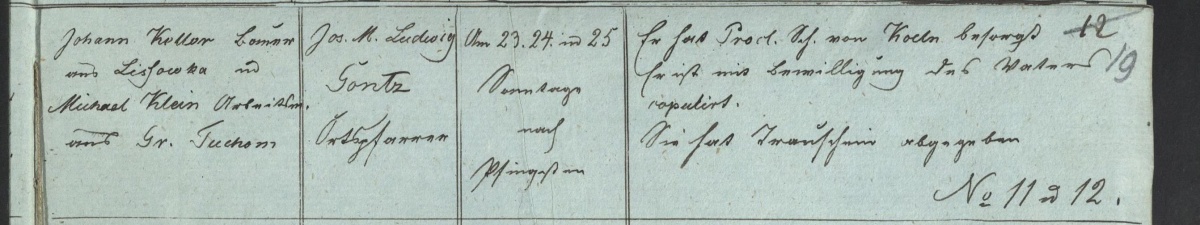 Johann Kollar Bauer
aus Lissowka ud
Michael Klein Arbeitsm.
aus Gr. Tuchom
Jos. M. Ludwig
Gontz
Ortspfarrer
Am 23. 24. ud 25
Sonntage
nach
Pfingsten
Er hat Procl. Sch. von Koeln besorgt
Er ist mit Bewilligung des Vaters
copulirt.
Sie hat Trauschein abgegeben
No 11 ud 12.
12
19